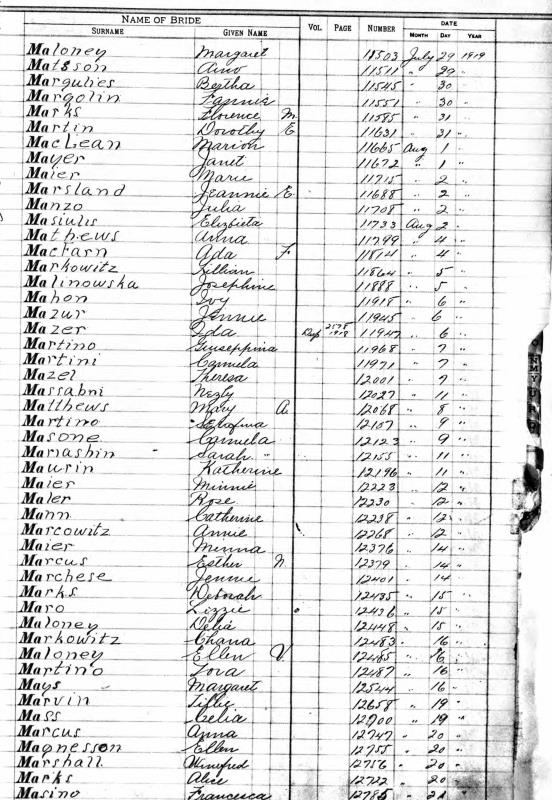 NAME OF BRIDE VOL. PAGE NUMBER DATE
SURNAME GIVEN NAME MONTH DAY YEAR
Maloney Margaret 11503 July 29 1919
Matsson Aino 11511 " 29 "
Margulies Bertha 11545 " 30 "
Margolin Fannie 11551 " 30 "
Marks Florence M. 11585 " 31 "
Martin Dorothy E 11631 " 31 "
MacLean Marion 11665 Aug 1 "
Mayer Janet 11672 " 1 "
Maier Marie 11715 " 2 "
Marsland Jeannie E. 11688 " 2 "
Manzo Julia 11708 " 2 "
Masiulis Elizbieta 11733 Aug 2 "
Mathews Anna 11799 " 4 "
Macfarn Ada F. 11814 " 4 "
Markowitz Lillian 11864 " 5 "
Malinowska Josephine 11888 " 5 "
Mahon Ivy 11918 " 6 "
Mazur Jennie 11945 " 6 "
Mazer Ida Dup 2578 1918 11947 " 6 "
Martino Giuseppina 11968 " 7 "
Martini Carmela 11971 " 7 "
Mazel Theresa 12001 " 7 "
Massabni Nezly 12027 " 11 "
Matthews Mary A. 12068 " 8 "
Martino Serafina 12107 " 9 "
Masone Carmela 12123 " 9 "
Mariashin Sarah 12155 " 11 "
Maurin Katherine 12196 " 11 "
Maier Minnie 12223 " 12 "
Maler Rose 12230 " 12 "
Mann Catherine 12238 " 12 "
Marcowitz Annie 12268 " 12 "
Maier Minna 12376 " 14 "
Marcus Esther N. 12379 " 14 "
Marchese Jennie 12401 " 14 "
Marks Deborah 12435 " 15 "
Maro Lizzie 12436 " 15 "
Maloney Delia 12448 " 15 "
Markowitz Chana 12483 " 16 "
Maloney Ellen V. 12485 " 16 "
Martino 12487 " 16 "
Mays Margaret 12544 " 16 "
Marvin Tillie 12658 " 19 "
Mass Celia 12700 " 19 "
Marcus Anna 12747 " 20 "
Magnesson Ellen 12755 " 20 "
Marshall Winifred 12756 " 20 "
Marks Alice 12722 " 20 "
Masino Francesca 12785 " 21 "